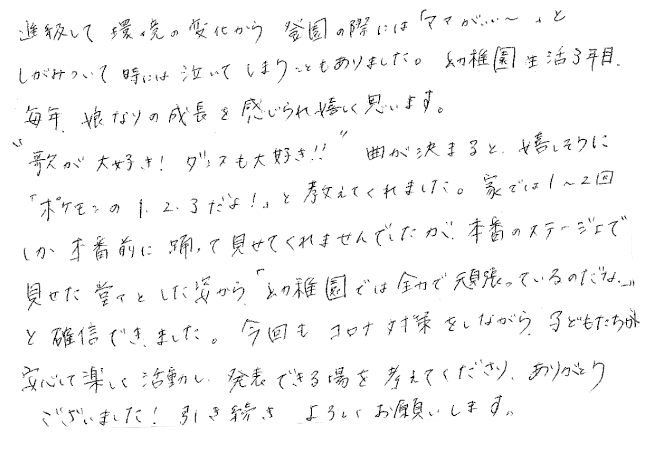 進級して環境の変化から登園の際には「ママがいい〜」と
しがみついて時には泣いてしまうこともありました。幼稚園生活3年目、
毎年、娘なりの成長を感じられ嬉しく思います。
"歌が大好き！ダンスも大好き!!" 曲が決まると、嬉しそうに
「ポケモンの1.2.3だよ！」と教えてくれました。家では1〜2回
しか本番前に踊って見せてくれませんでしたが、本番のステージ上で
見せた堂々とした姿から「幼稚園では全力で頑張っているのだな。」
と確信できました。今回もコロナ対策をしながら、子どもたちが
安心して楽しく活動し、発表できる場を考えてくださり、ありがとう
ございました！引き続きよろしくお願いします。